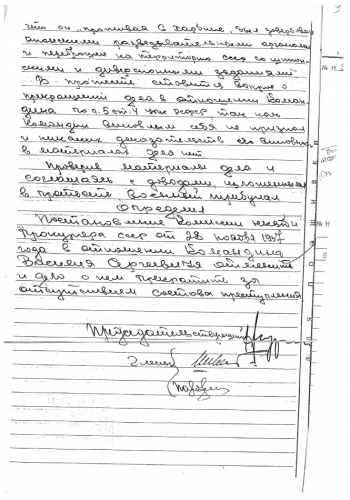 что он, проживая в Харбине, был завербован
японскими разведывательными органами
и переброшен на территорию СССР со шпион-
скими и диверсионными заданиями.
В протесте ставится вопрос о
прекращении дела в отношении Команд
дина по п. 5 ст. 4 УПК РСФСР так как
Командин виновным себя не признал
и никаких доказательств его виновно
в материалах дела нет.
Проверив материалы дела и
соглашаясь с доводами, изложенными
в протесте Военный трибунал
Определил
Постановление Комиссии НКВД и
Прокурора СССР от 28 ноября 1937
года в отношении Командина
Василия Сергеевича отменить
и дело о нем прекратить за
отсутствием состава преступления
Председательствующий
Члены